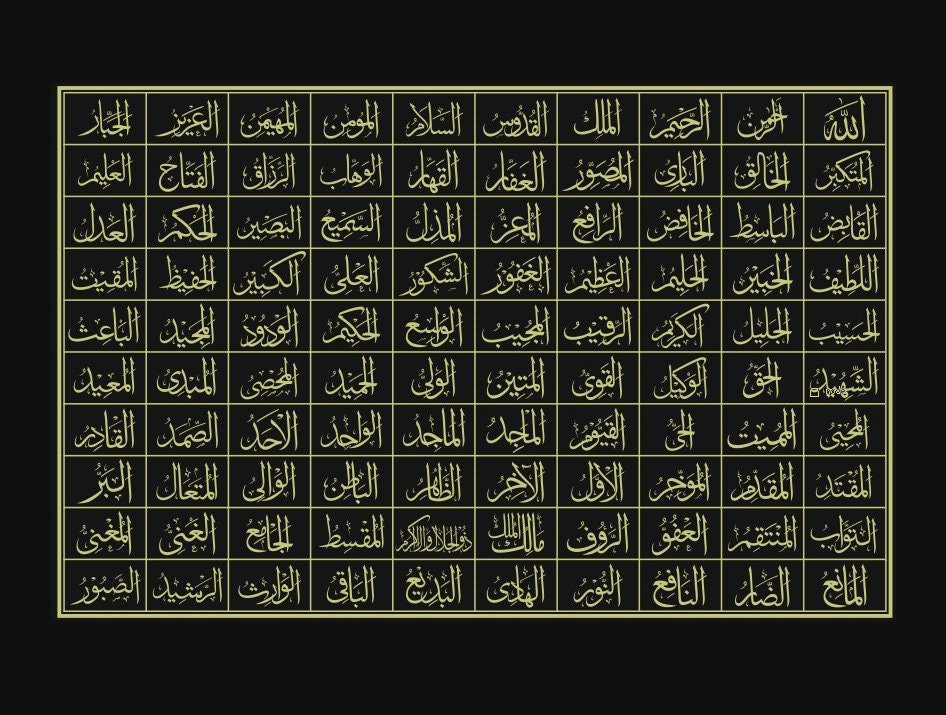 الله الرحمن الرحيم الملك القدوس السلام المؤمن المهيمن العزيز الجبار
المتكبر الخالق البارئ المصور الغفار القهار الوهاب الرزاق الفتاح العليم
القابض الباسط الخافض الرافع المعز المذل السميع البصير الحكم العدل
اللطيف الخبير الحليم العظيم الغفور الشكور العلى الكبير الحفيظ المقيت
الحسيب الجليل الكريم الرقيب المجيب الواسع الحكيم الودود المجيد الباعث
الشهيد الحق الوكيل القوى المتين الولى الحميد المحصى المبدى المعيد
المحيى المميت الحى القيوم الماجد الماجد الواحد الاحد الصمد القادر
المقتد المقدم المؤخر الاول الآخر الظاهر الباطن الوالى المتعال البر
التواب المنتقم العفو الرؤوف مالك الملك ذو الجلال والاكرام المقسط الجامع الغنى المغنى
المانع الضار النافع النور الهادى البديع الباقى الوارث الرشيد الصبور